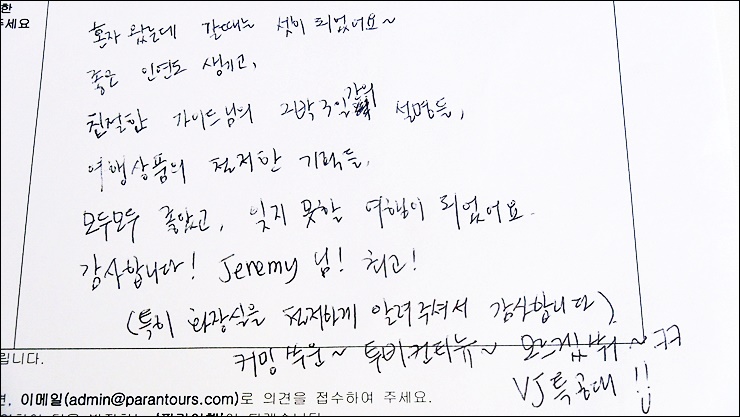 한
주세요
혼자 왔는데 갈때는 셋이 되었어요~
좋은 인연도 생기고,
친절한 가이드님의 2박 3일간의 설명들,
여행상품의 철저한 기획들,
모두모두 좋았고, 잊지 못할 여행이 되었어요.
감사합니다! Jeremy 님! 최고!
(특히 화장실을 철저하게 알려주셔서 감사합니다)
커밍쑤운~ 투비컨티뉴~ 모르겠쒀~ㅋㅋ
VJ특공대!!
립니다.
면, 이메일(admin@parantours.com)로 의견을 접수하여 주세요.